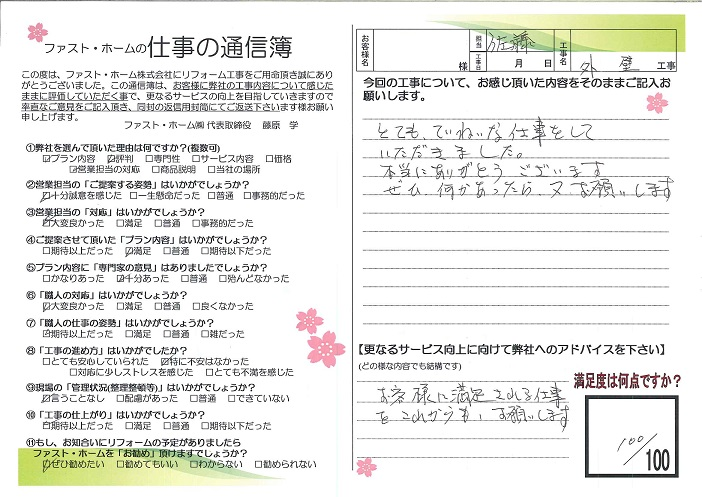 ファスト・ホームの仕事の通信簿
この度は、ファスト・ホーム株式会社にリフォーム工事をご用命頂き誠にあり
がとうございました。この通信簿は、お客様に弊社の工事内容について感じた
ままに評価していただく事で、更なるサービスの向上を目指していきますので
率直なご意見をご記入頂き、同封の返信用封筒にてご返送下さいます様お願い
申し上げます。
ファスト・ホーム㈱ 代表取締役 藤原 学
①弊社を選んで頂いた理由は何ですか?(複数可)
☑プラン内容 ☑評判 □専門性 □サービス内容 □価格
☑営業担当の対応 □商品説明 □当社の場所
②営業担当の「ご提案する姿勢」はいかがでしょうか?
☑十分誠意を感じた □一生懸命だった □普通 □事務的だった
③営業担当の「対応」はいかがでしょうか?
☑大変良かった □満足 □普通 □事務的だった
④ご提案させて頂いた「プラン内容」はいかがでしょうか?
□期待以上だった ☑満足 □普通 □期待以下だった
⑤プラン内容に「専門家の意見」はありましたでしょうか?
□かなりあった ☑十分あった □普通 □殆んどなかった
⑥「職人の対応」はいかがでしょうか?
☑大変良かった □満足 □普通 □良くなかった
⑦「職人の仕事の姿勢」はいかがでしょうか?
☑期待以上だった □満足 □普通 □雑だった
⑧「工事の進め方」はいかがでしたか?
□とても安心していられた ☑特に不安はなかった
□対応に少しストレスを感じた □とても不満を感じた
⑨現場の「管理状況(整理整頓等)」はいかがでしょうか?
☑言うことなし □配慮があった □普通 □できていない
⑩「工事の仕上がり」はいかがでしょうか?
□期待以上だった ☑満足 □普通 □期待以下だった
⑪もし、お知合いにリフォームの予定がありましたら
ファスト・ホームを「お勧め」頂けますでしょうか?
☑ぜひ勧めたい □勧めてもいい □わからない □勧められない
お客様名 様 担当 佐藤 工事日 月 日 工事名 外壁 工事
今回の工事について、お感じ頂いた内容をそのままご記入お
願いします。
とても、ていねいな仕事をして
いただきました。
本当にありがとうございます
ぜひ、何かあったら、又お願いします
【更なるサービス向上に向けて弊社へのアドバイスを下さい】
(どの様な内容でも結構です)
お客様に満足される仕事
をこれからもお願いします
満足度は何点ですか?
100/100